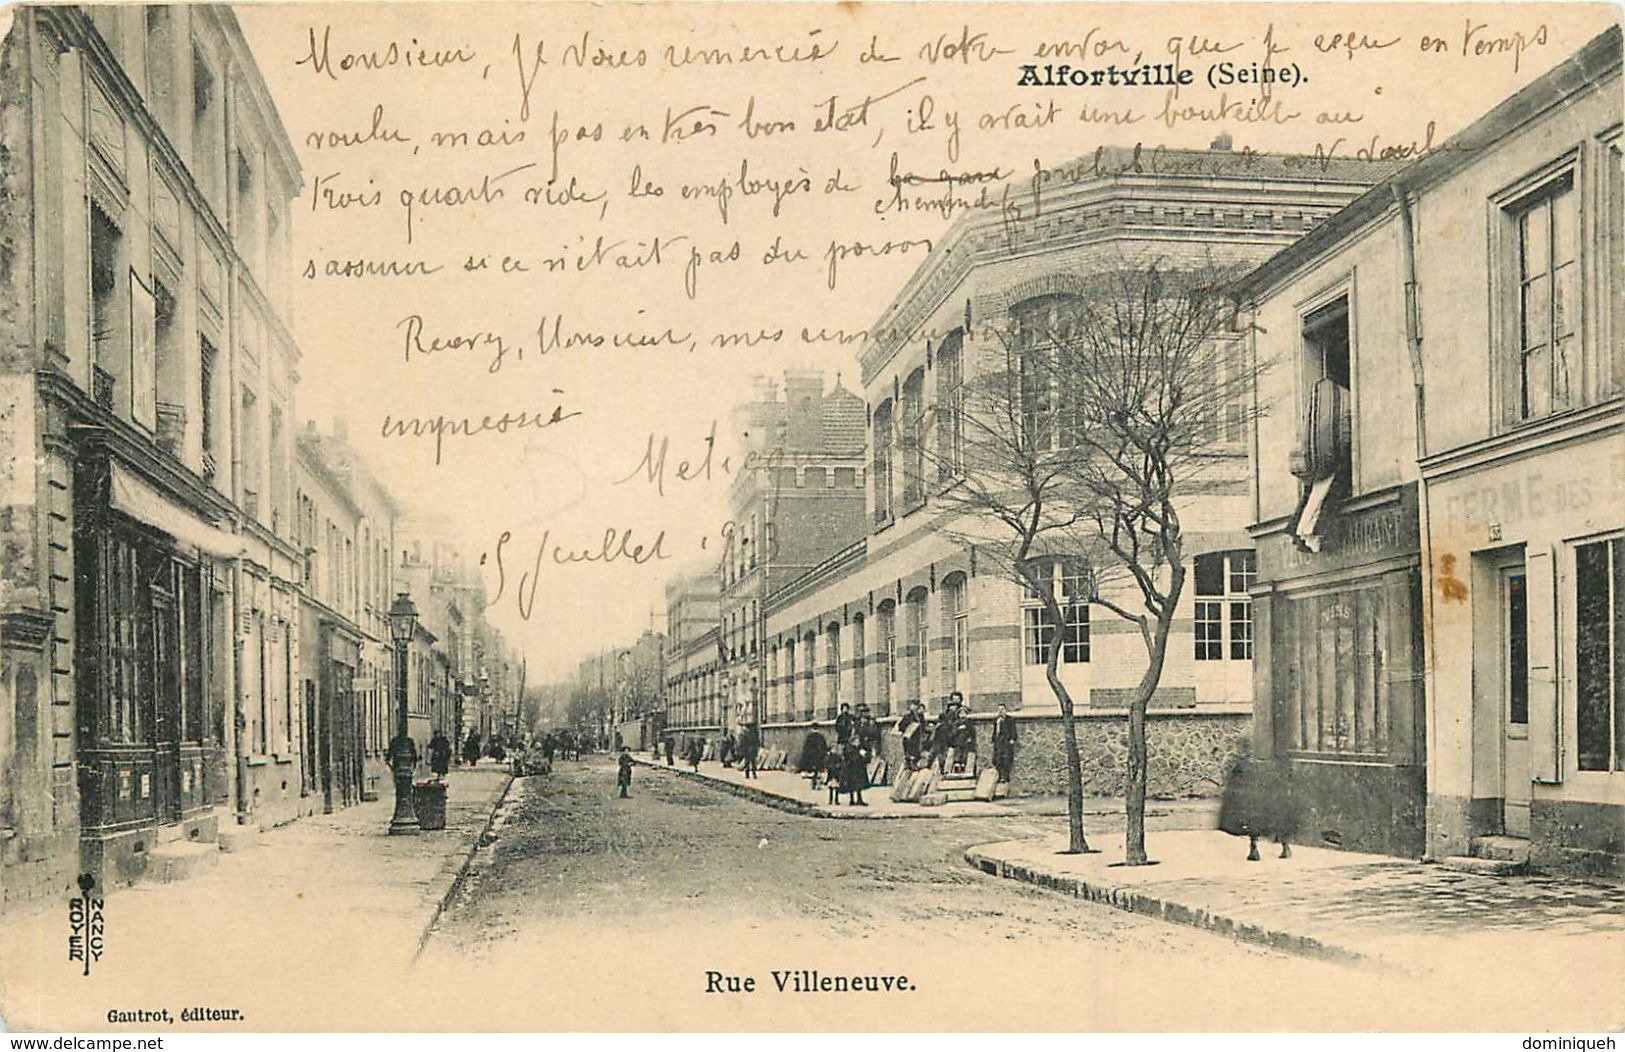 Monsieur, je vous remercie de votre envoi, que je reçu en temps
Alfortville (Seine).
voulu, mais pas en très bon état, il y avait une bouteille au
trois quarts vide, les employés de la gare probablement ont voulu
chemin de f
s'assurer si ce n'était pas du poison.
Monsieur, mes
empressés
5 Juillet
RESTAURANT
FERME DES
VINS
ROYER
NANCY
Rue Villeneuve.
Gautrot, éditeur.
www.delcampe.net
dominiqueh